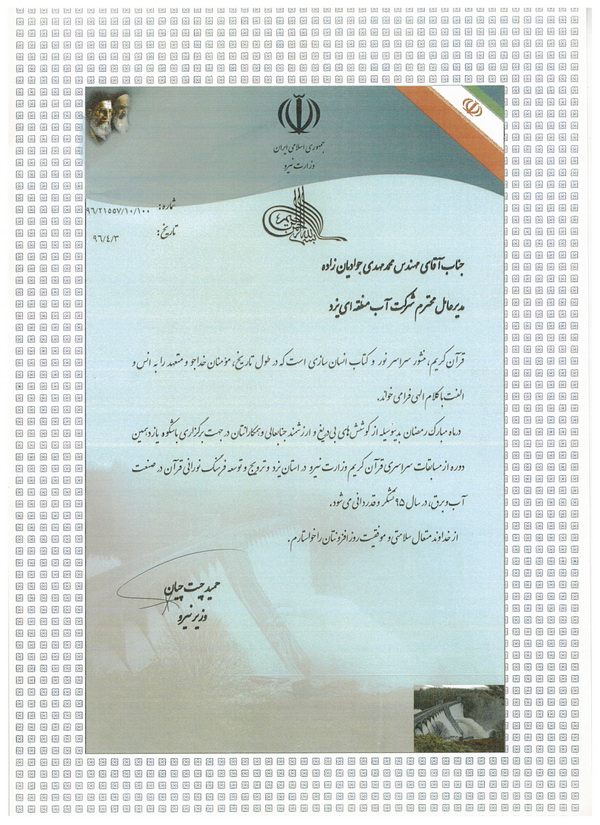 جمهوری اسلامی ایران
وزارت نیرو
شماره: ۹۶/۲۱۵۵۷/۱۰/۱۰۰
تاریخ: ۹۶/۴/۳
جناب آقای مهندس محمدمهدی جوادیان زاده
مدیرعامل محترم شرکت آب منطقه ای یزد
قرآن کریم، منشور سراسر نور و کتاب انسان سازی است که در طول تاریخ، مؤمنان خداجو و متعهد را به انس و
الفت با کلام الهی فرا می خواند.
در ماه مبارک رمضان بدینوسیله از کوشش های بی دریغ و ارزشمند جنابعالی و همکارانتان در جهت برگزاری باشکوه یازدهمین
دوره از مسابقات سراسری قرآن کریم وزارت نیرو در استان یزد و ترویج و توسعه فرهنگ نورانی قرآن در صنعت
آب و برق، در سال ۹۵ تشکر و قدردانی می شود.
از خداوند متعال سلامتی و موفقیت روزافزونتان را خواستارم.
حمید چیت چیان
وزیر نیرو